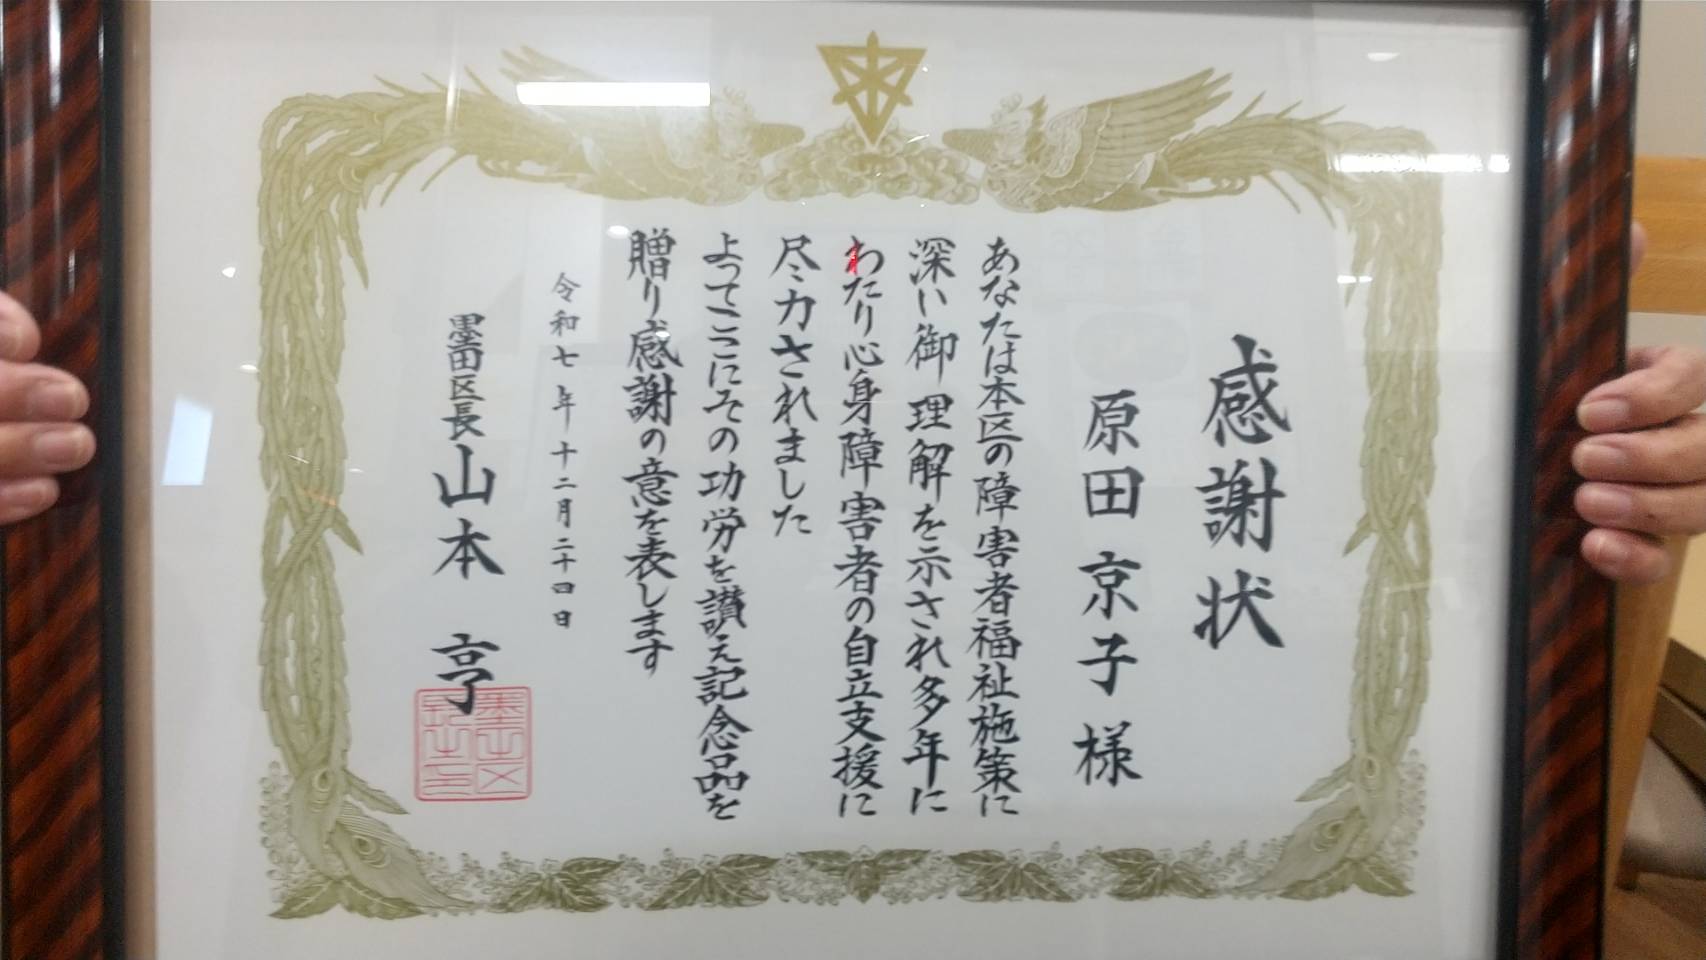 感謝状
原田京子様
あなたは本区の障害者福祉施策に
深い御理解を示され多年に
わたり心身障害者の自立支援に
尽力されました
よってここにその功労を讃え記念品を
贈り感謝の意を表します
令和七年十二月二十四日
墨田区長 山本 亨